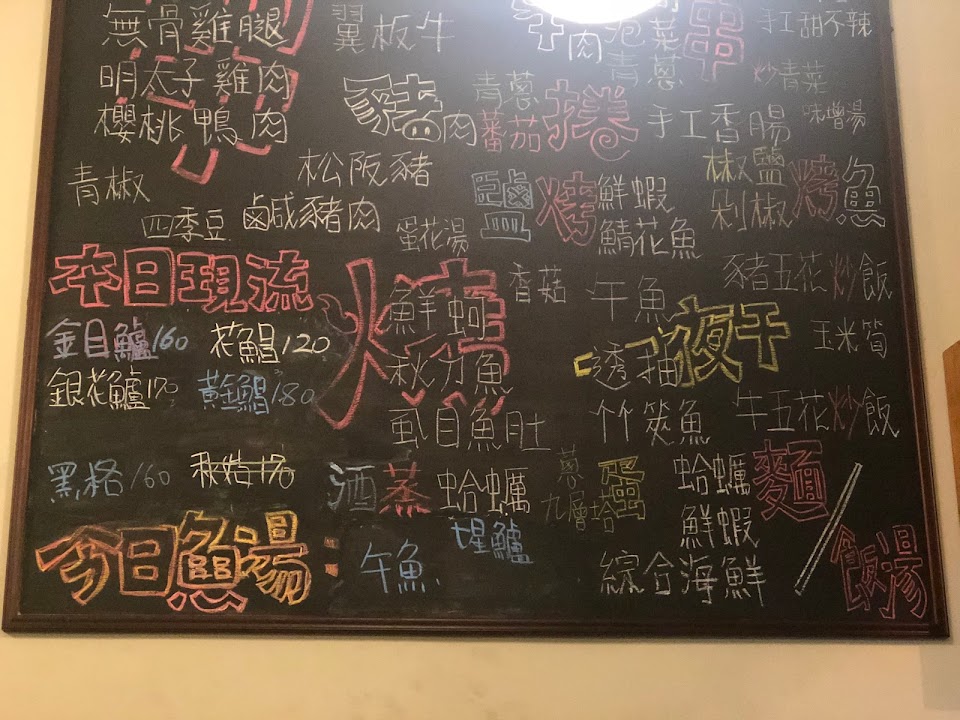 無骨雞腿
明太子雞肉
櫻桃鴨肉
青椒
四季豆
翼板牛
豬肉
松阪豬
鹹豬肉
蛋花湯
牛肉
泡菜
青蔥
串
青蔥
蕃茄
捲
手工甜不辣
炒青菜
味增湯
手工香腸
鹽
烤
鮮蝦
鯖花魚
椒鹽
剁椒
烤魚
本日現流
金目鱸160
花鯧120
銀花鱸170
黃金鯧180
黑格160
今日魚湯:
午魚
七星鱸
燒
鮮蚵
秋刀魚
虱目魚肚
香菇
酒蒸蛤蠣
午魚
透抽
竹筴魚
一夜干
豬五花炒飯
玉米筍
牛五花炒飯
蔥
九層塔
蛋
蛤蠣
鮮蝦
綜合海鮮
麵/飯湯